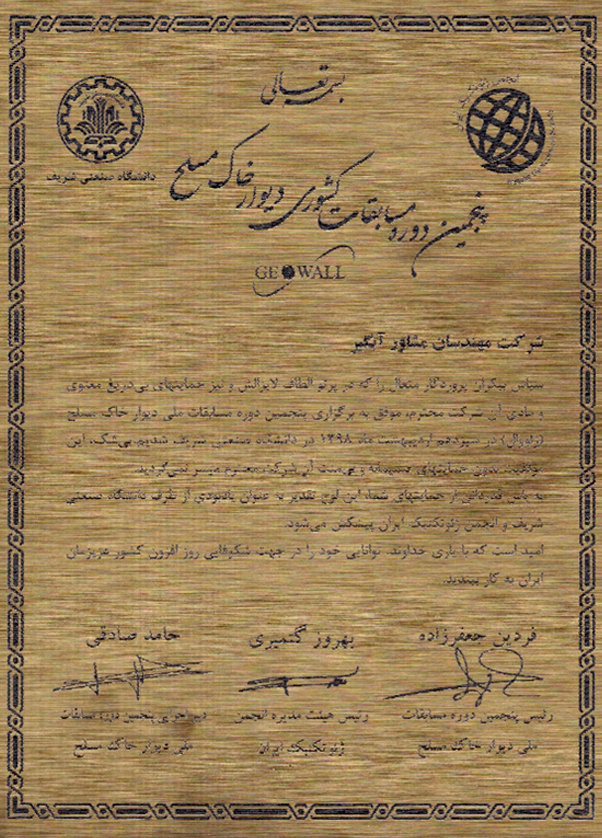 بسمه تعالی
دانشگاه صنعتی شریف
پنجمین دوره مسابقات کشوری دیوار خاک مسلح
GEOWALL
شرکت مهندسان مشاور آبگیر
سپاس بیکران پروردگار متعال را که در پرتو الطاف لایزالش و نیز حمایتهای بی‌دریغ معنوی
و مادی آن شرکت محترم، موفق به برگزاری پنجمین دوره مسابقات ملی دیوار خاک مسلح
(ژئووال) در سیزدهم اردیبهشت ماه ۱۳۹۸ در دانشگاه صنعتی شریف شدیم. بی‌شک، این
موفقیت بدون حمایتهای صمیمانه و بی‌منت آن شرکت محترم میسر نمی‌گردید.
به پاس قدردانی از حمایتهای شما، این لوح تقدیر به عنوان یادبودی از طرف دانشگاه صنعتی
شریف و انجمن ژئوتکنیک ایران پیشکش می‌شود.
امید است که با یاری خداوند، توانایی خود را در جهت شکوفایی روز افزون کشور عزیزمان
ایران به کار ببندید.
فردین جعفرزاده
بهروز گتمیری
حامد صادقی
رئیس پنجمین دوره مسابقات
رئیس هیئت مدیره انجمن
دبیر اجرایی پنجمین دوره مسابقات
ملی دیوار خاک مسلح
ژئوتکنیک ایران
ملی دیوار خاک مسلح